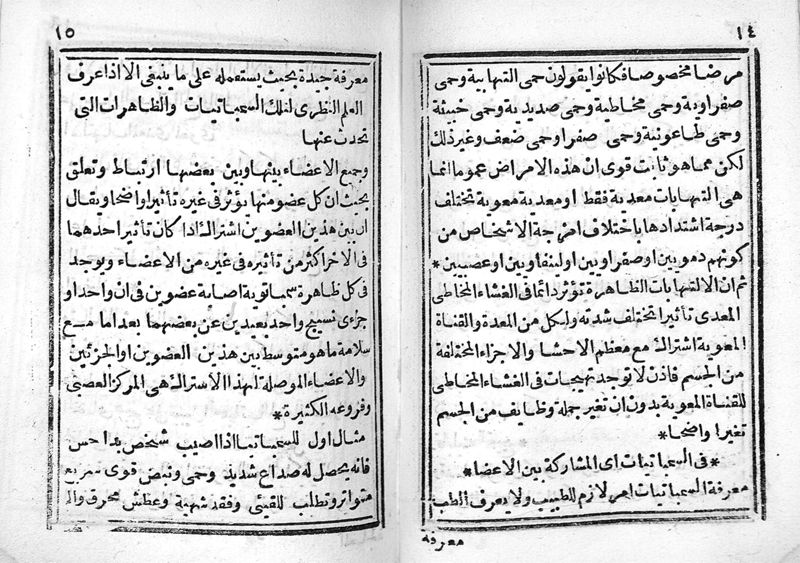 ١٤
مرضا مخصوصا فكانوا يقولون حمى التهابية وحمى
صفراوية وحمى مخاطية وحمى صديدية وحمى خبيثة
وحمى طاعونية وحمى صفرا وحمى ضعف وغير ذلك
لكن مما هو ثابت قوى ان هذه الامراض عموما انما
هى التهابات معدية فقط او معدية معوية تختلف
درجة اشتدادها باختلاف امزجة الاشخاص من
كونهم دمويين او صفراويين او لينفاويين او عصبيين *
ثم ان الالتهابات الظاهرة تؤثر دائما فى الغشاء المخاطى
المعدى تأثيرا تختلف شدته ولكل من المعدة والقناة
المعوية اشتراك مع معظم الاحشا والاجزاء المختلفة
من الجسم فاذن لا توجد تهيجات فى الغشاء المخاطى
للقناة المعوية بدون ان تغير جملة وظايف من الجسم
تغيرا واضحا *
* فى السمباتيات اى المشاركة بين الاعضا *
معرفة السمباتيات امر لازم للطبيب ولا يعرف الطب
معرفة
١٥
معرفة جيدة بحيث يستعمله على ما ينبغى الا اذا عرف
العلم النظرى لتلك السمباتيات والظاهرات التى
تحدث عنها
وجميع الاعضاء بينها وبين بعضها ارتباط وتعلق
بحيث ان كل عضو منها يؤثر فى غيره تأثيرا واضحا ويقال
ان بين هذين العضوين اشتراك اذا كان تأثير احدهما
فى الاخر اكثر من تأثيره فى غيره من الاعضاء ويوجد
فى كل ظاهرة سمباتوية اصابة عضوين فى ان واحد او
جزءى نسيج واحد بعيدين عن بعضهما بعدا ما مع
سلامة ما هو متوسط بين هذين العضوين او الجزئين
والاعضاء الموصلة لهذا الاشتراك هى المركز العصبى
وفروعه الكثيرة *
مثال اول للسمباتيا اذا اصيب شخص بداحس
فانه يحصل له صداع شديد وحمى ونبض قوى سريع
متواتر وتطلب للقيئى وفقد شهية وعطش محرق والم